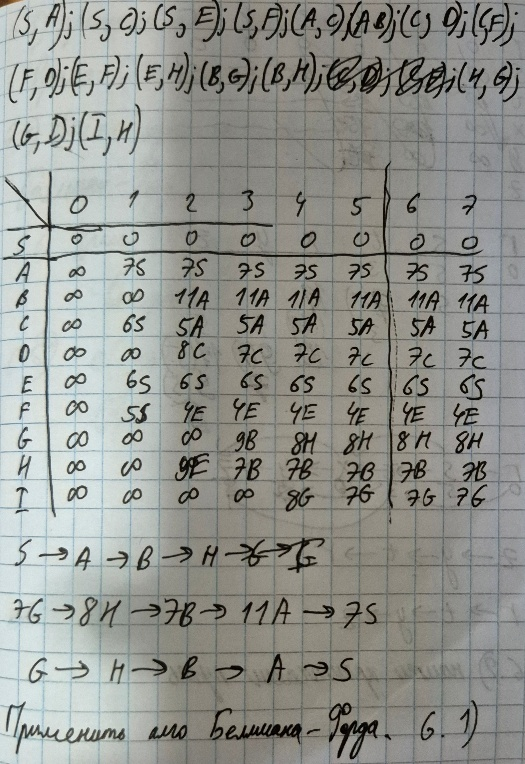 (S, A); (S, C); (S, E); (S, F); (A, C); (A B); (C, D); (C, F);
(F, D); (E, F); (E, H); (B, G); (B, H); (H, G);
(G, I); (I, H)
0 1 2 3 4 5 6 7
S 0 0 0 0 0 0 0 0
A ∞ 7S 7S 7S 7S 7S 7S 7S
B ∞ ∞ 11A 11A 11A 11A 11A 11A
C ∞ 6S 5A 5A 5A 5A 5A 5A
D ∞ ∞ 8C 7C 7C 7C 7C 7C
E ∞ 6S 6S 6S 6S 6S 6S 6S
F ∞ 5S 4E 4E 4E 4E 4E 4E
G ∞ ∞ ∞ 9B 8H 8H 8H 8H
H ∞ ∞ 9E 7B 7B 7B 7B 7B
I ∞ ∞ ∞ ∞ 8G 7G 7G 7G
S → A → B → H → G
7G → 8H → 7B → 11A → 7S
G → H → B → A → S
Применить алг Беллмана-Форда. 6. 1)